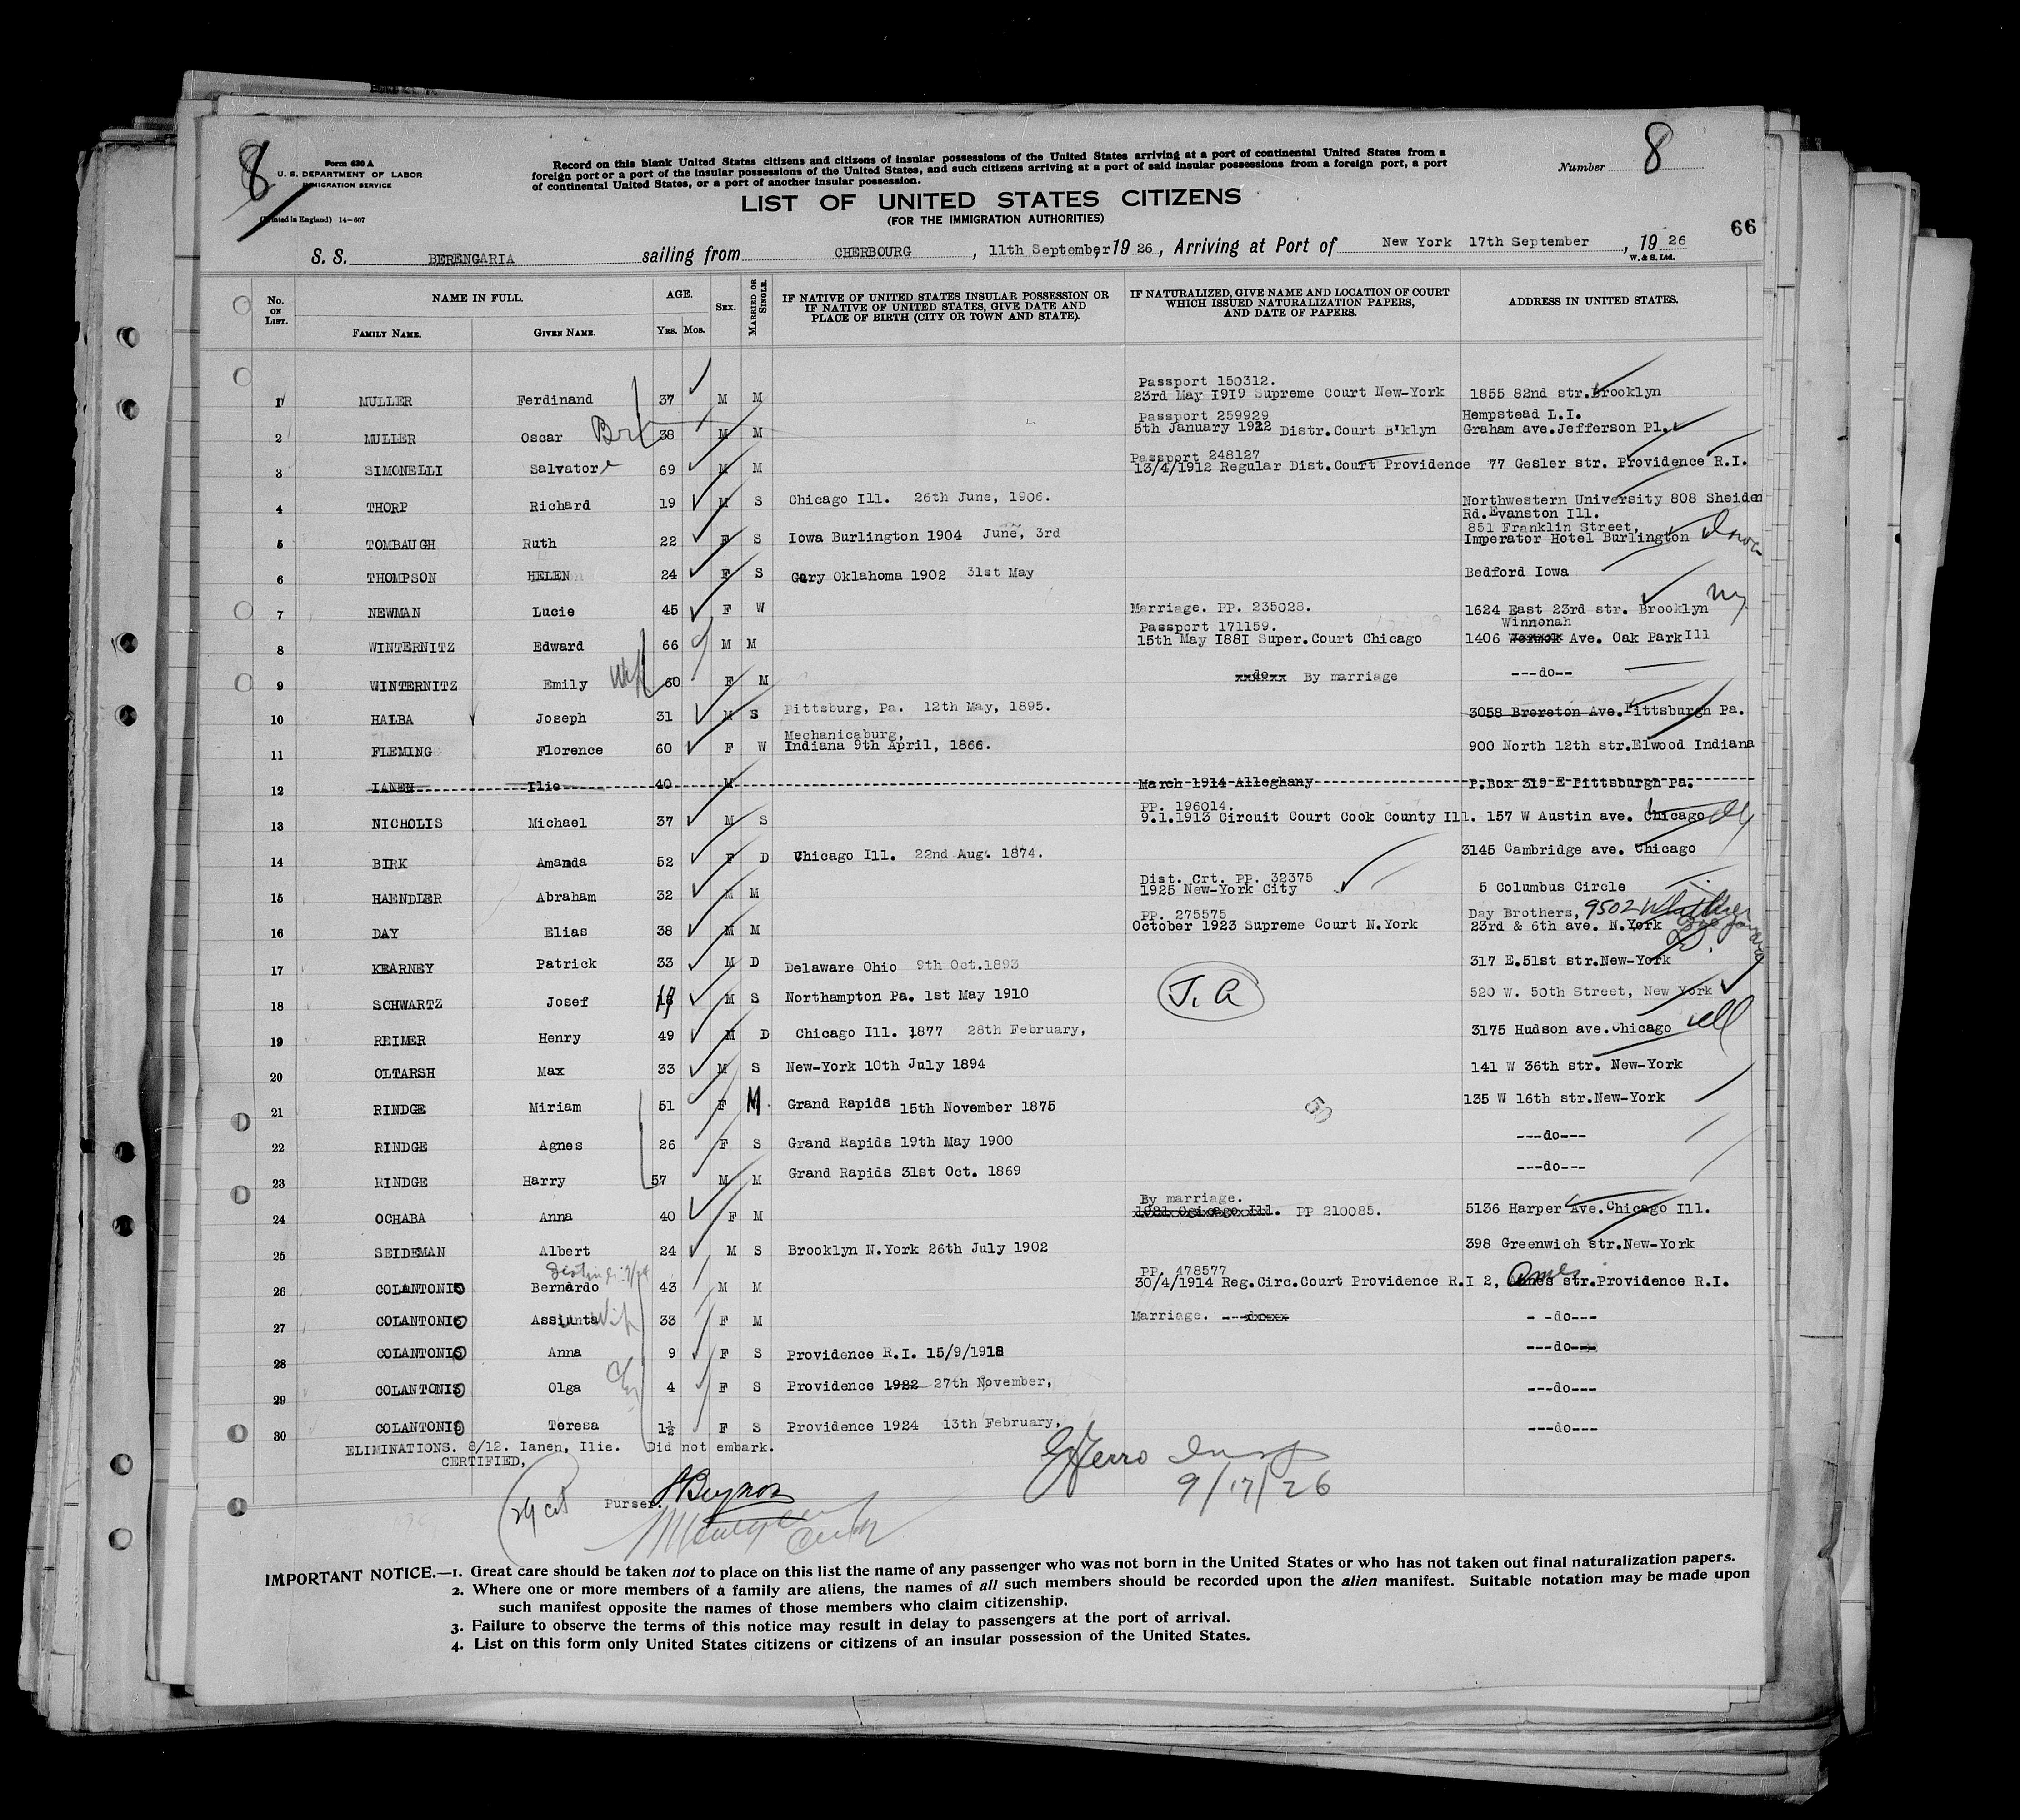 8
Form 630 A
U. S. DEPARTMENT OF LABOR
IMMIGRATION SERVICE
(Printed in England) 14-607
Record on this blank United States citizens and citizens of insular possessions of the United States arriving at a port of continental United States from a
foreign port or a port of the insular possessions of the United States, and such citizens arriving at a port of said insular possessions from a foreign port, a port
of continental United States, or a port of another insular possession.
Number 8
LIST OF UNITED STATES CITIZENS
(FOR THE IMMIGRATION AUTHORITIES)
66
S. S. BERENGARIA sailing from CHERBOURG, 11th September, 1926, Arriving at Port of New York 17th September, 1926
W. & S. Ltd.
No. ON LIST. NAME IN FULL. FAMILY NAME. GIVEN NAME. AGE. YRS. MOS. SEX. MARRIED OR SINGLE. IF NATIVE OF UNITED STATES INSULAR POSSESSION OR IF NATIVE OF UNITED STATES, GIVE DATE AND PLACE OF BIRTH (CITY OR TOWN AND STATE). IF NATURALIZED, GIVE NAME AND LOCATION OF COURT WHICH ISSUED NATURALIZATION PAPERS, AND DATE OF PAPERS. ADDRESS IN UNITED STATES.
Passport 150312.
1 MULLER Ferdinand 37 M M 23rd May 1919 Supreme Court New-York 1855 82nd str.Brooklyn
Passport 259929 Hempstead L.I.
2 MULLER Oscar Br 38 M M 5th January 1922 Distr.Court B'klyn Graham ave.Jefferson Pl.
Passport 248127
3 SIMONELLI Salvatore 69 M M 13/4/1912 Regular Dist.Court Providence 77 Gesler str. Providence R.I.
4 THORP Richard 19 M S Chicago Ill. 26th June, 1906. Northwestern University 808 Sheiden
Rd.Evanston Ill.
851 Franklin Street,
5 TOMBAUGH Ruth 22 F S Iowa Burlington 1904 June, 3rd Imperator Hotel Burlington Iowa
6 THOMPSON HELEN 24 F S Gary Oklahoma 1902 31st May Bedford Iowa
7 NEWMAN Lucie 45 F W Marriage. PP. 235028. 1624 East 23rd str. Brooklyn NY
Passport 171159. Winnonah
8 WINTERNITZ Edward 66 M M 15th May 1881 Super.Court Chicago 1406 Ave. Oak Park Ill
9 WINTERNITZ Emily Wf 60 F M xxdoxx By marriage ---do--
10 HALBA Joseph 31 M S Pittsburg, Pa. 12th May, 1895. 3058 Brereton Ave.Pittsburgh Pa.
Mechanicaburg,
11 FLEMING Florence 60 F W Indiana 9th April, 1866. 900 North 12th str.Elwood Indiana
12 IANEN Ilie 40 M March 1914 Alleghany P.Box 319 E Pittsburgh Pa.
PP. 196014.
13 NICHOLIS Michael 37 M S 9.1.1913 Circuit Court Cook County Ill. 157 W Austin ave. Chicago Ill
14 BIRK Amanda 52 F D Chicago Ill. 22nd Aug. 1874. 3145 Cambridge ave. Chicago
Dist. Crt. PP. 32375
15 HAENDLER Abraham 32 M M 1925 New-York City 5 Columbus Circle
PP. 275575 Day Brothers, 9502
16 DAY Elias 38 M M October 1923 Supreme Court N.York 23rd & 6th ave. N.York
17 KEARNEY Patrick 33 M D Delaware Ohio 9th Oct.1893 317 E.51st str.New-York
18 SCHWARTZ Josef M S Northampton Pa. 1st May 1910 J. A 520 W. 50th Street, New York
19 REIMER Henry 49 M D Chicago Ill. 1877 28th February, 3175 Hudson ave.Chicago Ill
20 OLTARSH Max 33 M S New-York 10th July 1894 141 W 36th str. New-York
21 RINDGE Miriam 51 F M. Grand Rapids 15th November 1875 50 135 W 16th str.New-York
22 RINDGE Agnes 26 F S Grand Rapids 19th May 1900 ---do---
23 RINDGE Harry 57 M M Grand Rapids 31st Oct. 1869 ---do---
By marriage.
24 OCHABA Anna 40 F M 1921 Chicago Ill. PP 210085. 5136 Harper Ave.Chicago Ill.
25 SEIDEMAN Albert 24 M S Brooklyn N.York 26th July 1902 398 Greenwich str.New-York
PP. 478577
26 COLANTONIO Bernardo 43 M M 30/4/1914 Reg.Circ.Court Providence R.I 2, Ames str.Providence R.I.
27 COLANTONIO Assiunta Wif 33 F M Marriage. ---doxxx - -do---
28 COLANTONIO Anna 9 F S Providence R.I. 15/9/1918 ---do---
29 COLANTONIO Olga 4 F S Providence 1922 27th November, ---do---
30 COLANTONIO Teresa 1½ F S Providence 1924 13th February, ---do---
ELIMINATIONS. 8/12. Ianen, Ilie. Did not embark.
CERTIFIED,
29 cit
Purser.
9/17/26
IMPORTANT NOTICE.—1. Great care should be taken not to place on this list the name of any passenger who was not born in the United States or who has not taken out final naturalization papers.
2. Where one or more members of a family are aliens, the names of all such members should be recorded upon the alien manifest. Suitable notation may be made upon
such manifest opposite the names of those members who claim citizenship.
3. Failure to observe the terms of this notice may result in delay to passengers at the port of arrival.
4. List on this form only United States citizens or citizens of an insular possession of the United States.